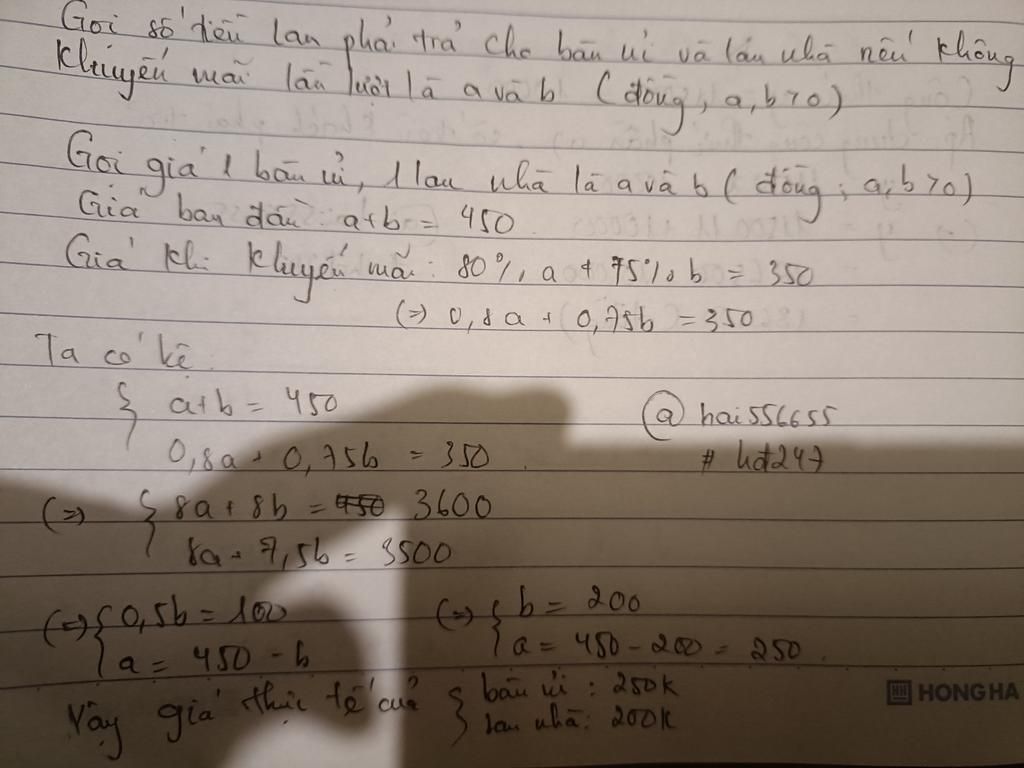 Gọi số tiền lan phải trả cho bàn ủi và lau nhà nếu không
khuyến mãi lần lượt là a và b (đồng, a,b>0)
Gọi giá 1 bàn ủi, 1 lau nhà là a và b (đồng; a,b>0)
Giá ban đầu: a+b= 450
Giá khi khuyến mãi: 80% a + 75% b = 350
(=) 0,8a + 0,75b = 350
Ta có hệ
{ a+b = 450
0,8a + 0,75b = 350
@hai556655
# hđ247
(=) { 8a + 8b = 3600
8a + 7,5b = 3500
(=) { 0,5b = 100
a = 450 - b
(=) { b = 200
a = 450 - 200 = 250.
Vậy giá thực tế của { bàn ủi : 250k
lau nhà: 200k
HONG HA